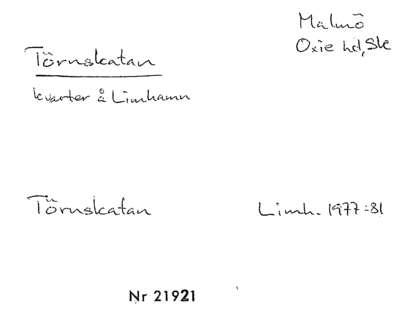 Malmö
Oxie hd, Sk
Törnskatan
kvarter å Limhamn
Törnskatan Limh. 1977:81
Nr 21921